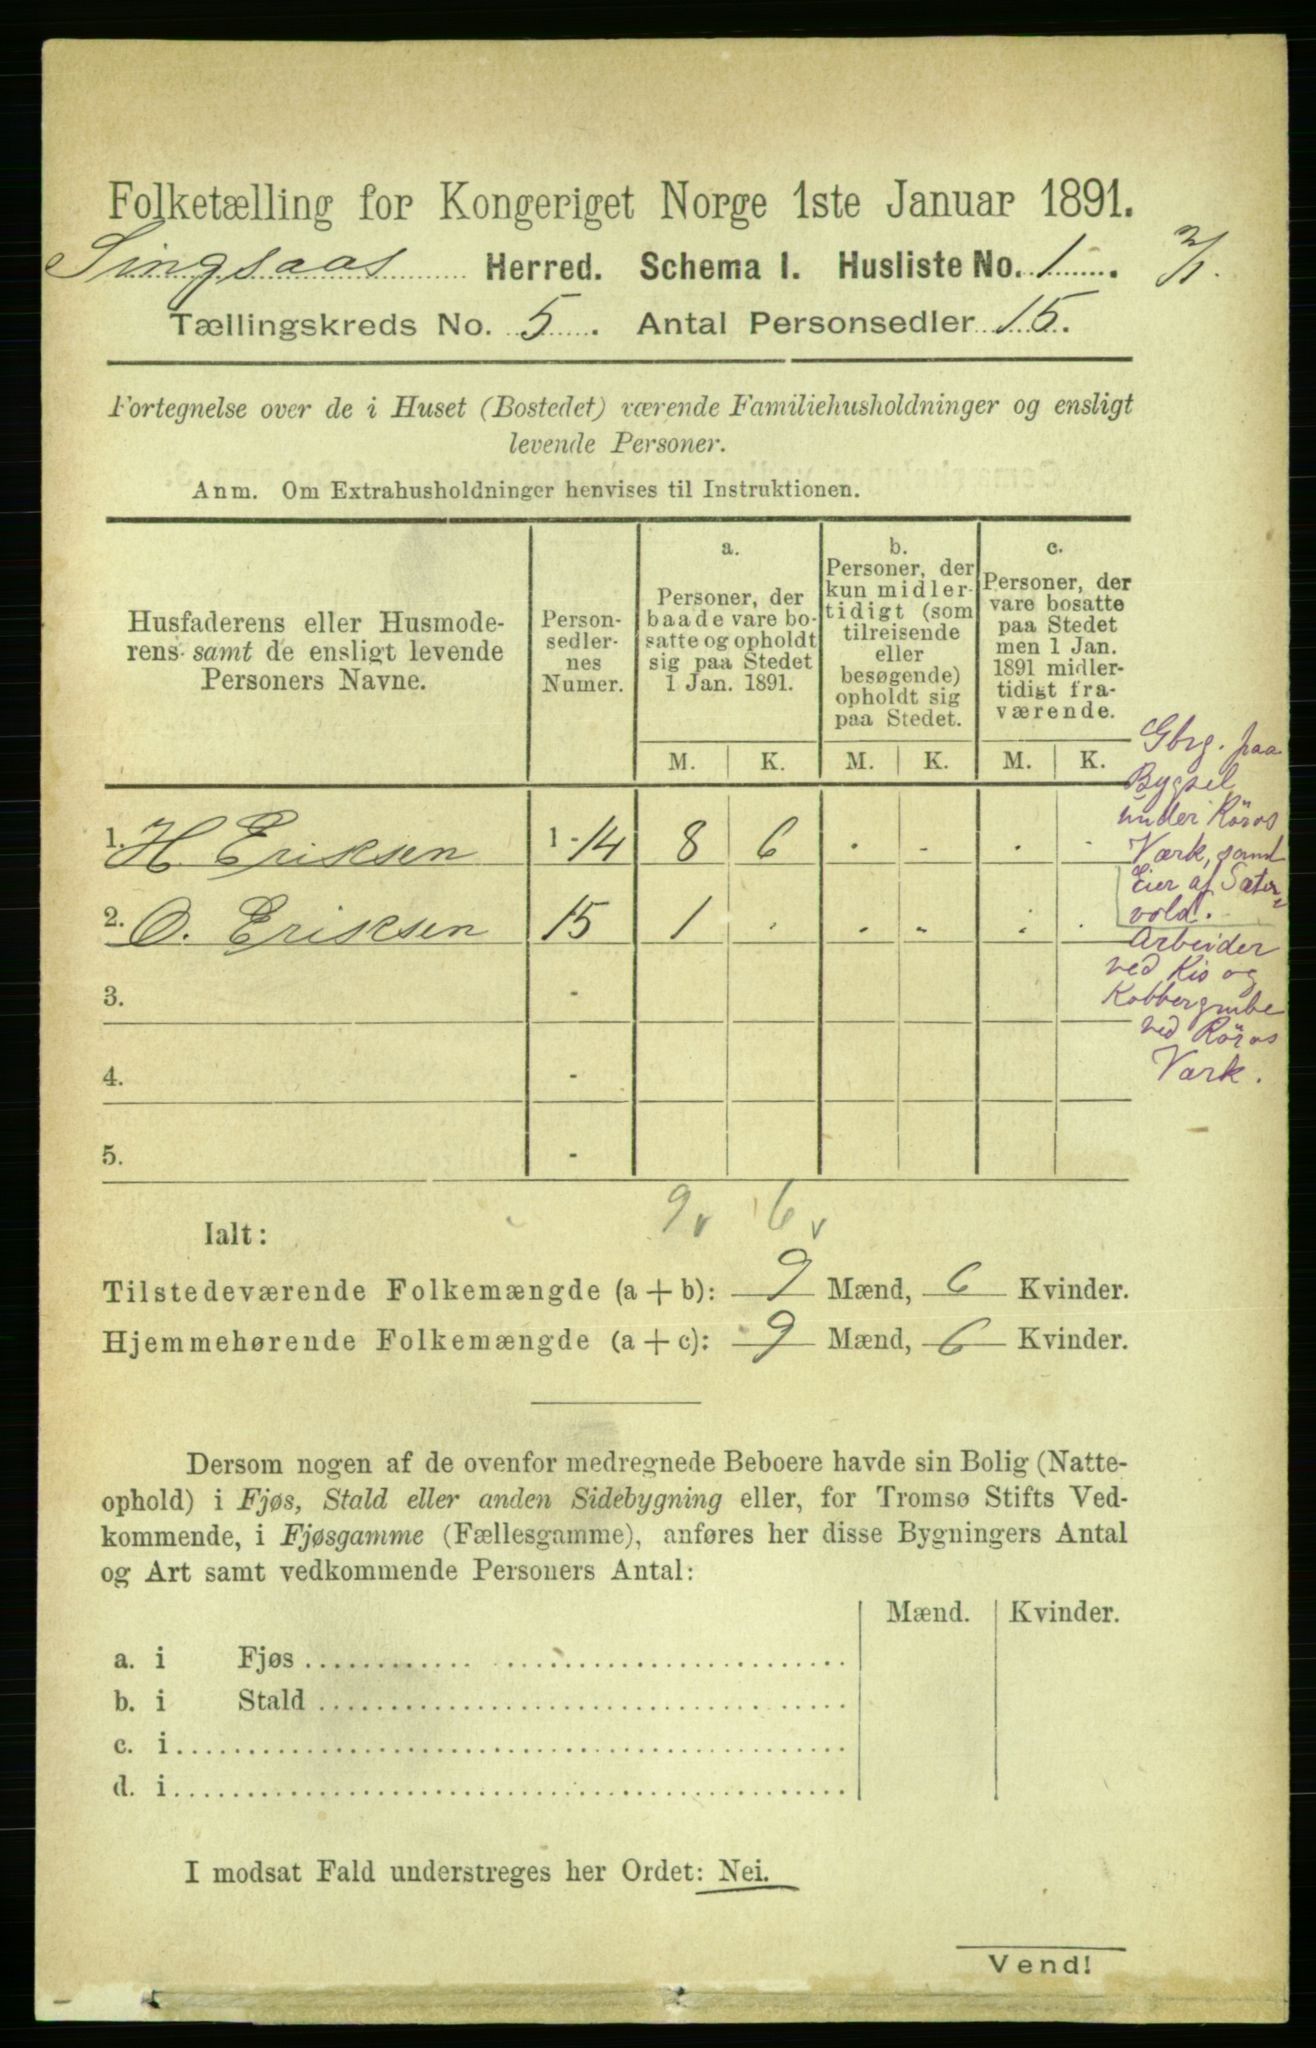 Folketælling for Kongeriget Norge 1ste Januar 1891.
Singsaas Herred. Schema I. Husliste No. 1. 2/1.
Tællingskreds No. 5. Antal Personsedler 15.
Fortegnelse over de i Huset (Bostedet) værende Familiehusholdninger og ensligt
levende Personer.
Anm. Om Extrahusholdninger henvises til Instruktionen.
Husfaderens eller Husmode-
rens samt de ensligt levende
Personers Navne.
Person-
sedler-
nes
Numer.
a.
Personer, der
baade vare bo-
satte og opholdt
sig paa Stedet
1 Jan. 1891.
b.
Personer, der
kun midler-
tidigt (som
tilreisende
eller
besøgende)
opholdt sig
paa Stedet.
c.
Personer, der
vare bosatte
paa Stedet
men 1 Jan.
1891 midler-
tidigt fra-
værende.
M. K. M. K. M. K.
1. H. Eriksen 1-14 8 6 . - . .
2. O. Eriksen 15 1 . . - . .
3. -
4. -
5. -
Gbrg. paa
Bygsel
under Röros
Værk, samt
Eier af Sæter-
vold.
Arbeider
ved Kis og
Kobbergrube
ved Röros
Værk.
9 v 6 v
Ialt:
Tilstedeværende Folkemængde (a + b): 9 Mænd, 6 Kvinder.
Hjemmehørende Folkemængde (a + c): 9 Mænd, 6 Kvinder.
Dersom nogen af de ovenfor medregnede Beboere havde sin Bolig (Natte-
ophold) i Fjøs, Stald eller anden Sidebygning eller, for Tromsø Stifts Ved-
kommende, i Fjøsgamme (Fællesgamme), anføres her disse Bygningers Antal
og Art samt vedkommende Personers Antal:
Mænd. Kvinder.
a. i Fjøs
b. i Stald
c. i
d. i
I modsat Fald understreges her Ordet: Nei.
Vend!